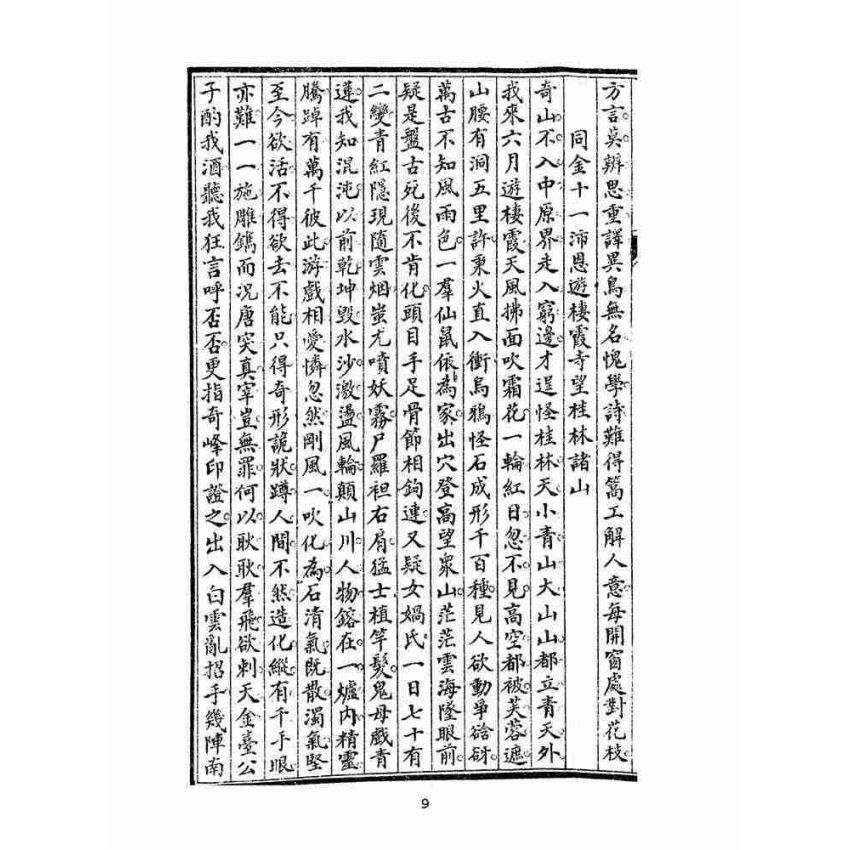 方言莫辨思重譯異鳥無名愧學詩難得篙工解人意每開窗處對花枝
同金十一沛恩遊棲霞寺望桂林諸山
奇山不入中原界走入窮邊才逞怪桂林天小青山大山山都立青天外
我來六月遊棲霞天風拂面吹霜花一輪紅日忽不見高空都被芙蓉遮
山腰有洞五里許秉火直入衝烏鴉怪石成形千百種見人欲動爭谽谺
萬古不知風雨色一羣仙鼠依為家出穴登高望衆山茫茫雲海墜眼前
疑是盤古死後不肯化頭目手足骨節相鉤連又疑女媧氏一日七十有
二變青紅隱現隨雲烟蚩尤噴妖霧尸羅袒右肩猛士植竿髮鬼母戲青
蓮我知混沌以前乾坤毀水沙激盪風輪顛山川人物鎔在一爐內精靈
騰踔有萬千彼此游戲相愛憐忽然剛風一吹化為石清氣既散濁氣堅
至今欲活不得欲去不能只得奇形詭狀蹲人間不然造化縱有千手眼
亦難一一施雕鐫而況唐突真宰豈無罪何以耿耿羣飛欲刺天金臺公
子酌我酒聽我狂言呼否否更指奇峰印證之出入白雲亂招手幾陣南
9